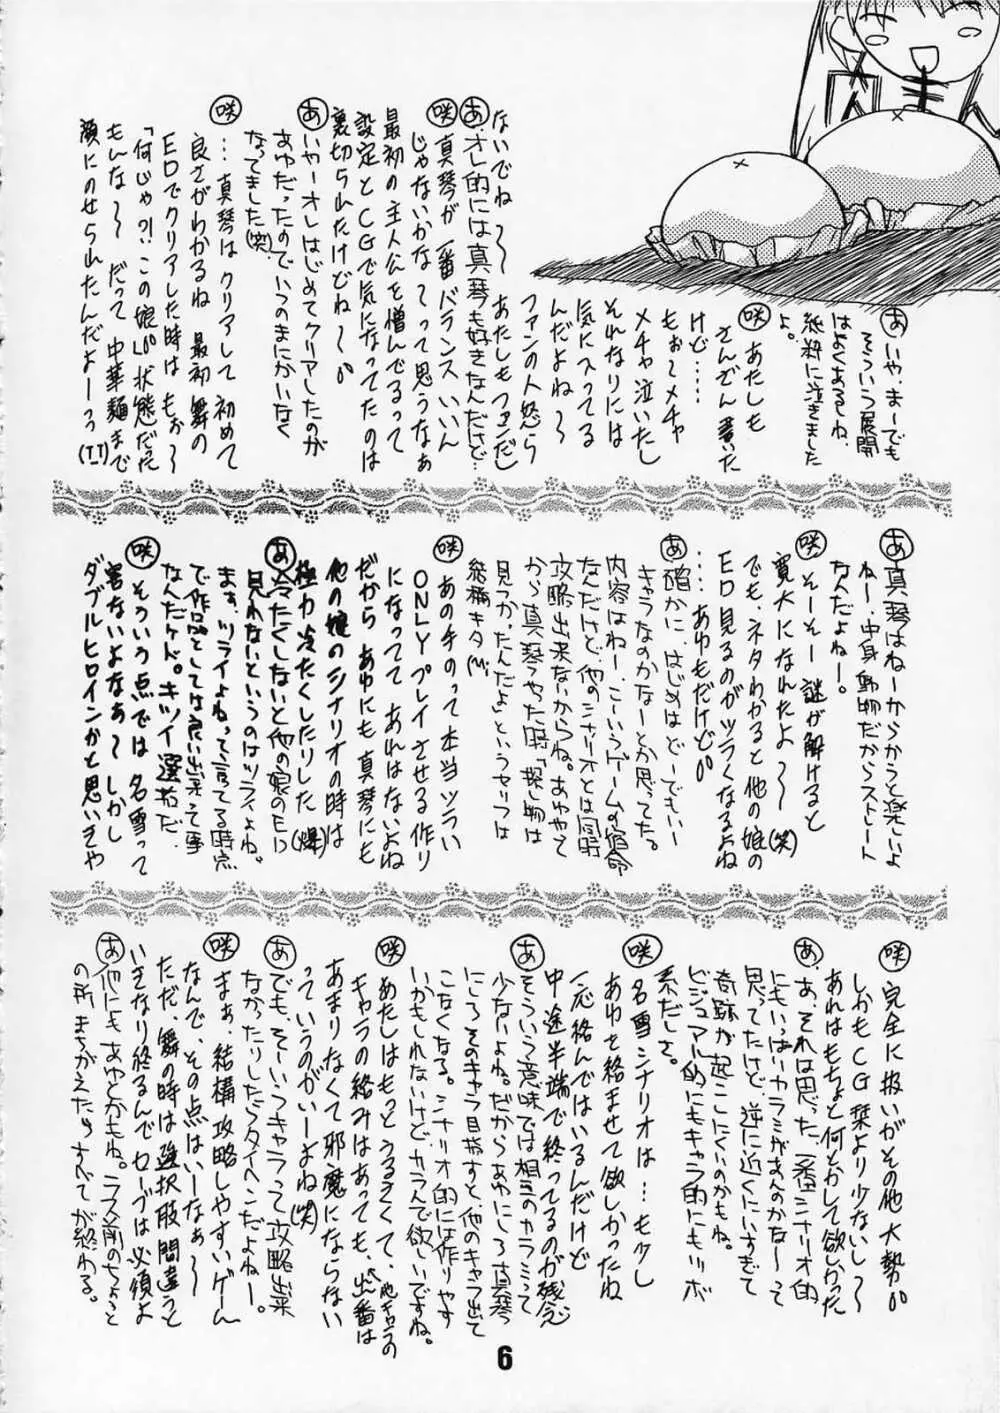 あ いや、まーでも
そういう展開
はよくあるしね、
純粋に泣きました
よ。
咲 あたしも
さんざん書いた
けど……
もぉ〜メチャ
メチャ泣いたし
それなりには
気に入ってる
んだよね〜
ファンの人怒ら
ないでね〜 あたしもファンだし
あ オレ的には真琴も好きなんだけど…
咲 真琴が一番バランスいいん
じゃないかなって思うなぁ
最初の主人公を憎んでるって
設定とCGで気になってたのは
裏切られたけどね〜
あ いやーオレはじめてクリアしたのが
あゆだったのでいつのまにかいなく
なってました(笑)
咲 …真琴はクリアして初めて
良さがわかるね 最初 舞の
EDでクリアした時は もぉ〜
「何じゃ?!この娘」状態だた
もんな〜 だって 中華麺まで
顔にのせられたんだよーっ(T_T)
あ 真琴はねーからかうと楽しいよ
ねー、中身動物だからストレート
なんだよねー。
咲 そーそー 謎が解けると
寛大になれたよ〜(笑)
でも、ネタわかると他の娘の
ED見るのがツラくなるよね
……あゆもだけど
あ 確かに、はじめはどーでもいー
キャラなのかなーとか思ってた。
内容はねー、こーいうゲームの宿命
なんだけど、他のシナリオとは同時
攻略出来ないからね。あゆやって
から真琴やった時「探し物は
見つかったんだよ」というセリフは
結構キタ
咲 あの手のって本当ツライ
ONLYプレイさせる作り
になってて あれはないよね
だから あゆにも真琴にも
他の娘のシナリオの時は
極力冷たくしたりした(爆)
あ 冷たくしないと他の娘のED
見れないというのはツライよね。
ます、ツライよねって言ってる時点
で作品としては良い出来って事
なんだケド。キツイ選択だ。
咲 そういう点では 名雪って
害ないよなぁ〜 しかし
ダブルヒロインかと思いきや
咲 完全に扱いがその他大勢
しかもCG 栞より少ないし〜
あれはもちょと何とかして欲しかった
あ あ、それは思った、一応シナリオ的
にもいっぱいカラミがあんのかなーって
思ってたけど、逆に近くにいすぎて
奇跡が起こしにくいのかもね。
ビジュアル的にもキャラ的にもツボ
系だしさ。
咲 名雪シナリオは…も少し
あゆを絡ませて欲しかったね
一応絡んではいるんだけど
中途半端で終ってるのが残念
あ そういう意味では相互のカラミって
少ないよね。だからあゆにしろ真琴
にしろそのキャラ目指すと、他のキャラ出て
こなくなる。シナリオ的には作りやす
いかもしれないけど、カラんで欲しいですね。
咲 あたしはもっとうるさくて、他キャラの
キャラの絡みはあっても、出番は
あまりなくて邪魔にならない
っていうのがいーよね(笑)
あ でも、そーいうキャラって攻略出来
なかったりしたらタイヘンだよねー。
咲 まぁ、結構攻略しやすいゲーム
なんで、その点はいーなぁ〜
ただ、舞の時は選択肢間違うと
いきなり終るんでセーブは必須よ
あ 他にもあゆとかもね。ラス前のちょっと
の所まちがえたらすべてが終わる。
6